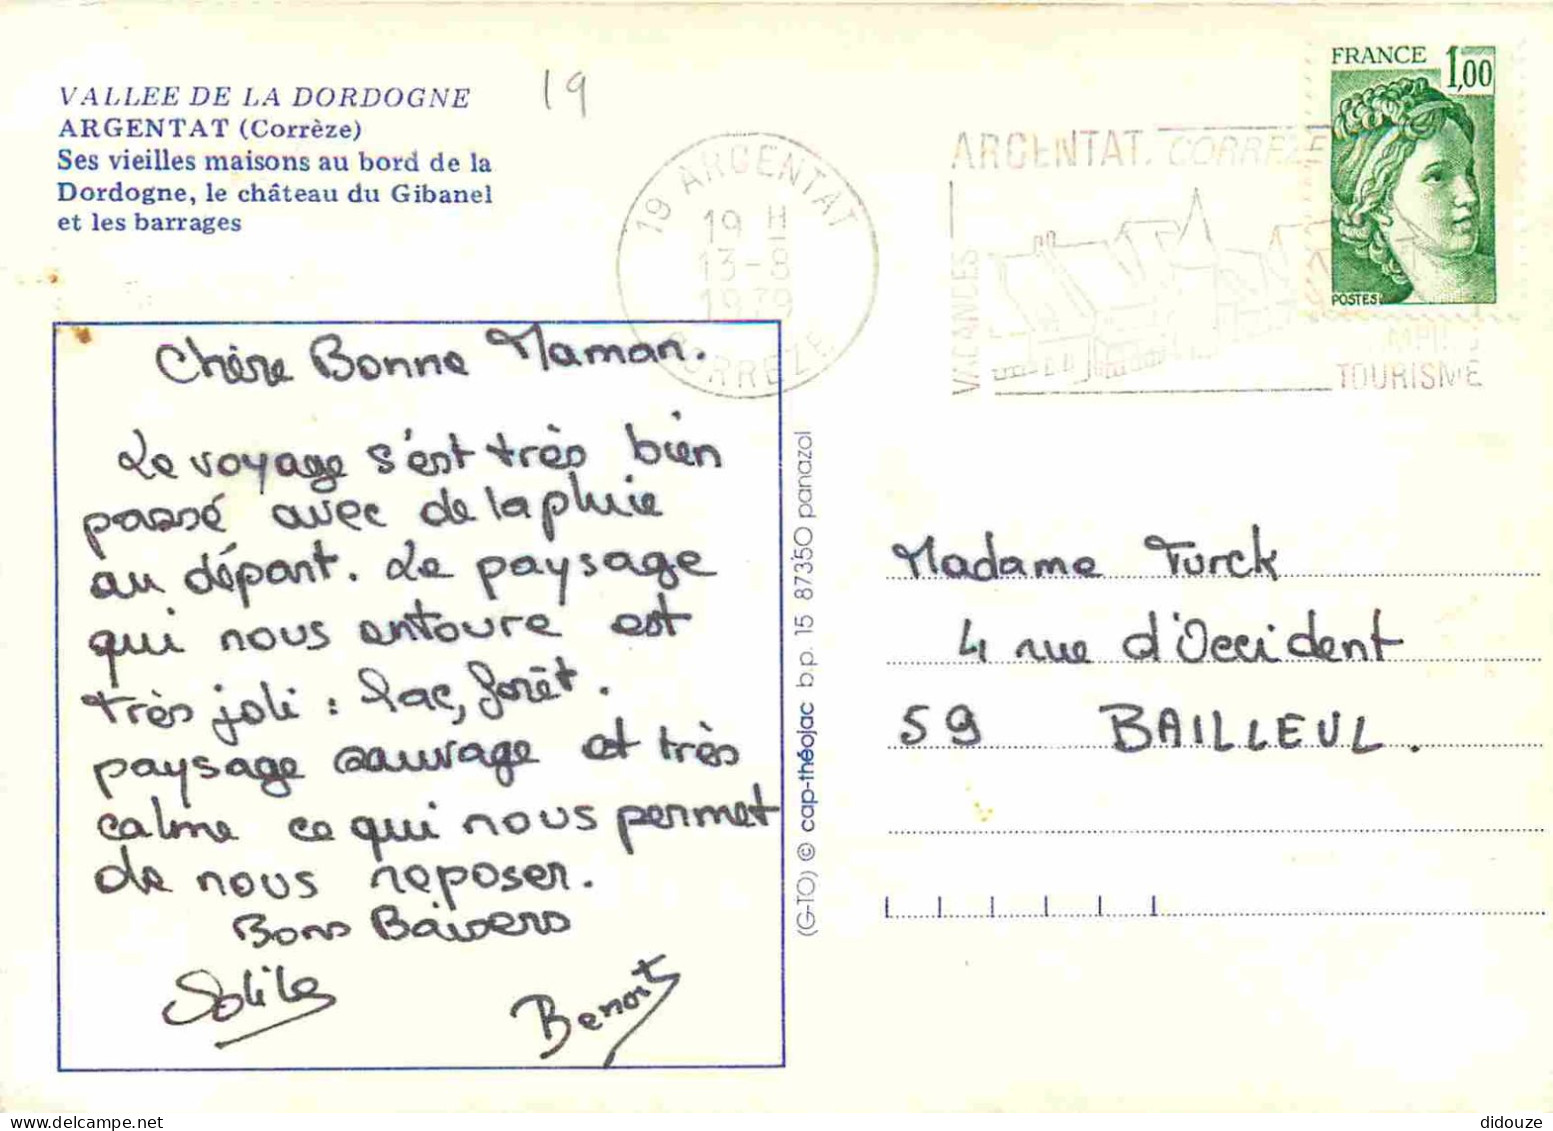 VALLEE DE LA DORDOGNE
ARGENTAT (Corrèze)
Ses vieilles maisons au bord de la
Dordogne, le château du Gibanel
et les barrages
19
19 ARGENTAT
19 H
13-8
1979
CORREZE
ARGENTAT. CORREZE
VACANCES
TOURISME
FRANCE 1,00
POSTES
Chère Bonne Maman.
Le voyage s'est très bien
passé avec de la pluie
au départ. Le paysage
qui nous entoure est
très joli : lac, forêt.
paysage sauvage et très
calme ce qui nous permet
de nous reposer.
Bons Baisers
Benoit
(G-TO) © cap-théojac b.p. 15 87350 panazol
Madame Turck
4 rue d'Occident
59 BAILLEUL.
didouze